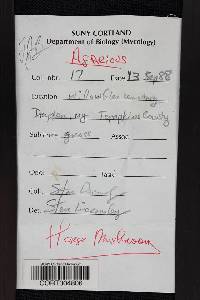 SUNY CORTLAND
Department of Biology (Mycology)
Agaricus
Col. nbr. 17 Date 13 Sep 88
Location Willow Glen cemetery
Dryden, NY Tompkins County
Substrate grass Assoc.
Odor Taste
Col. Steve
Det. Steve
Horse Mushroom
CORT004806